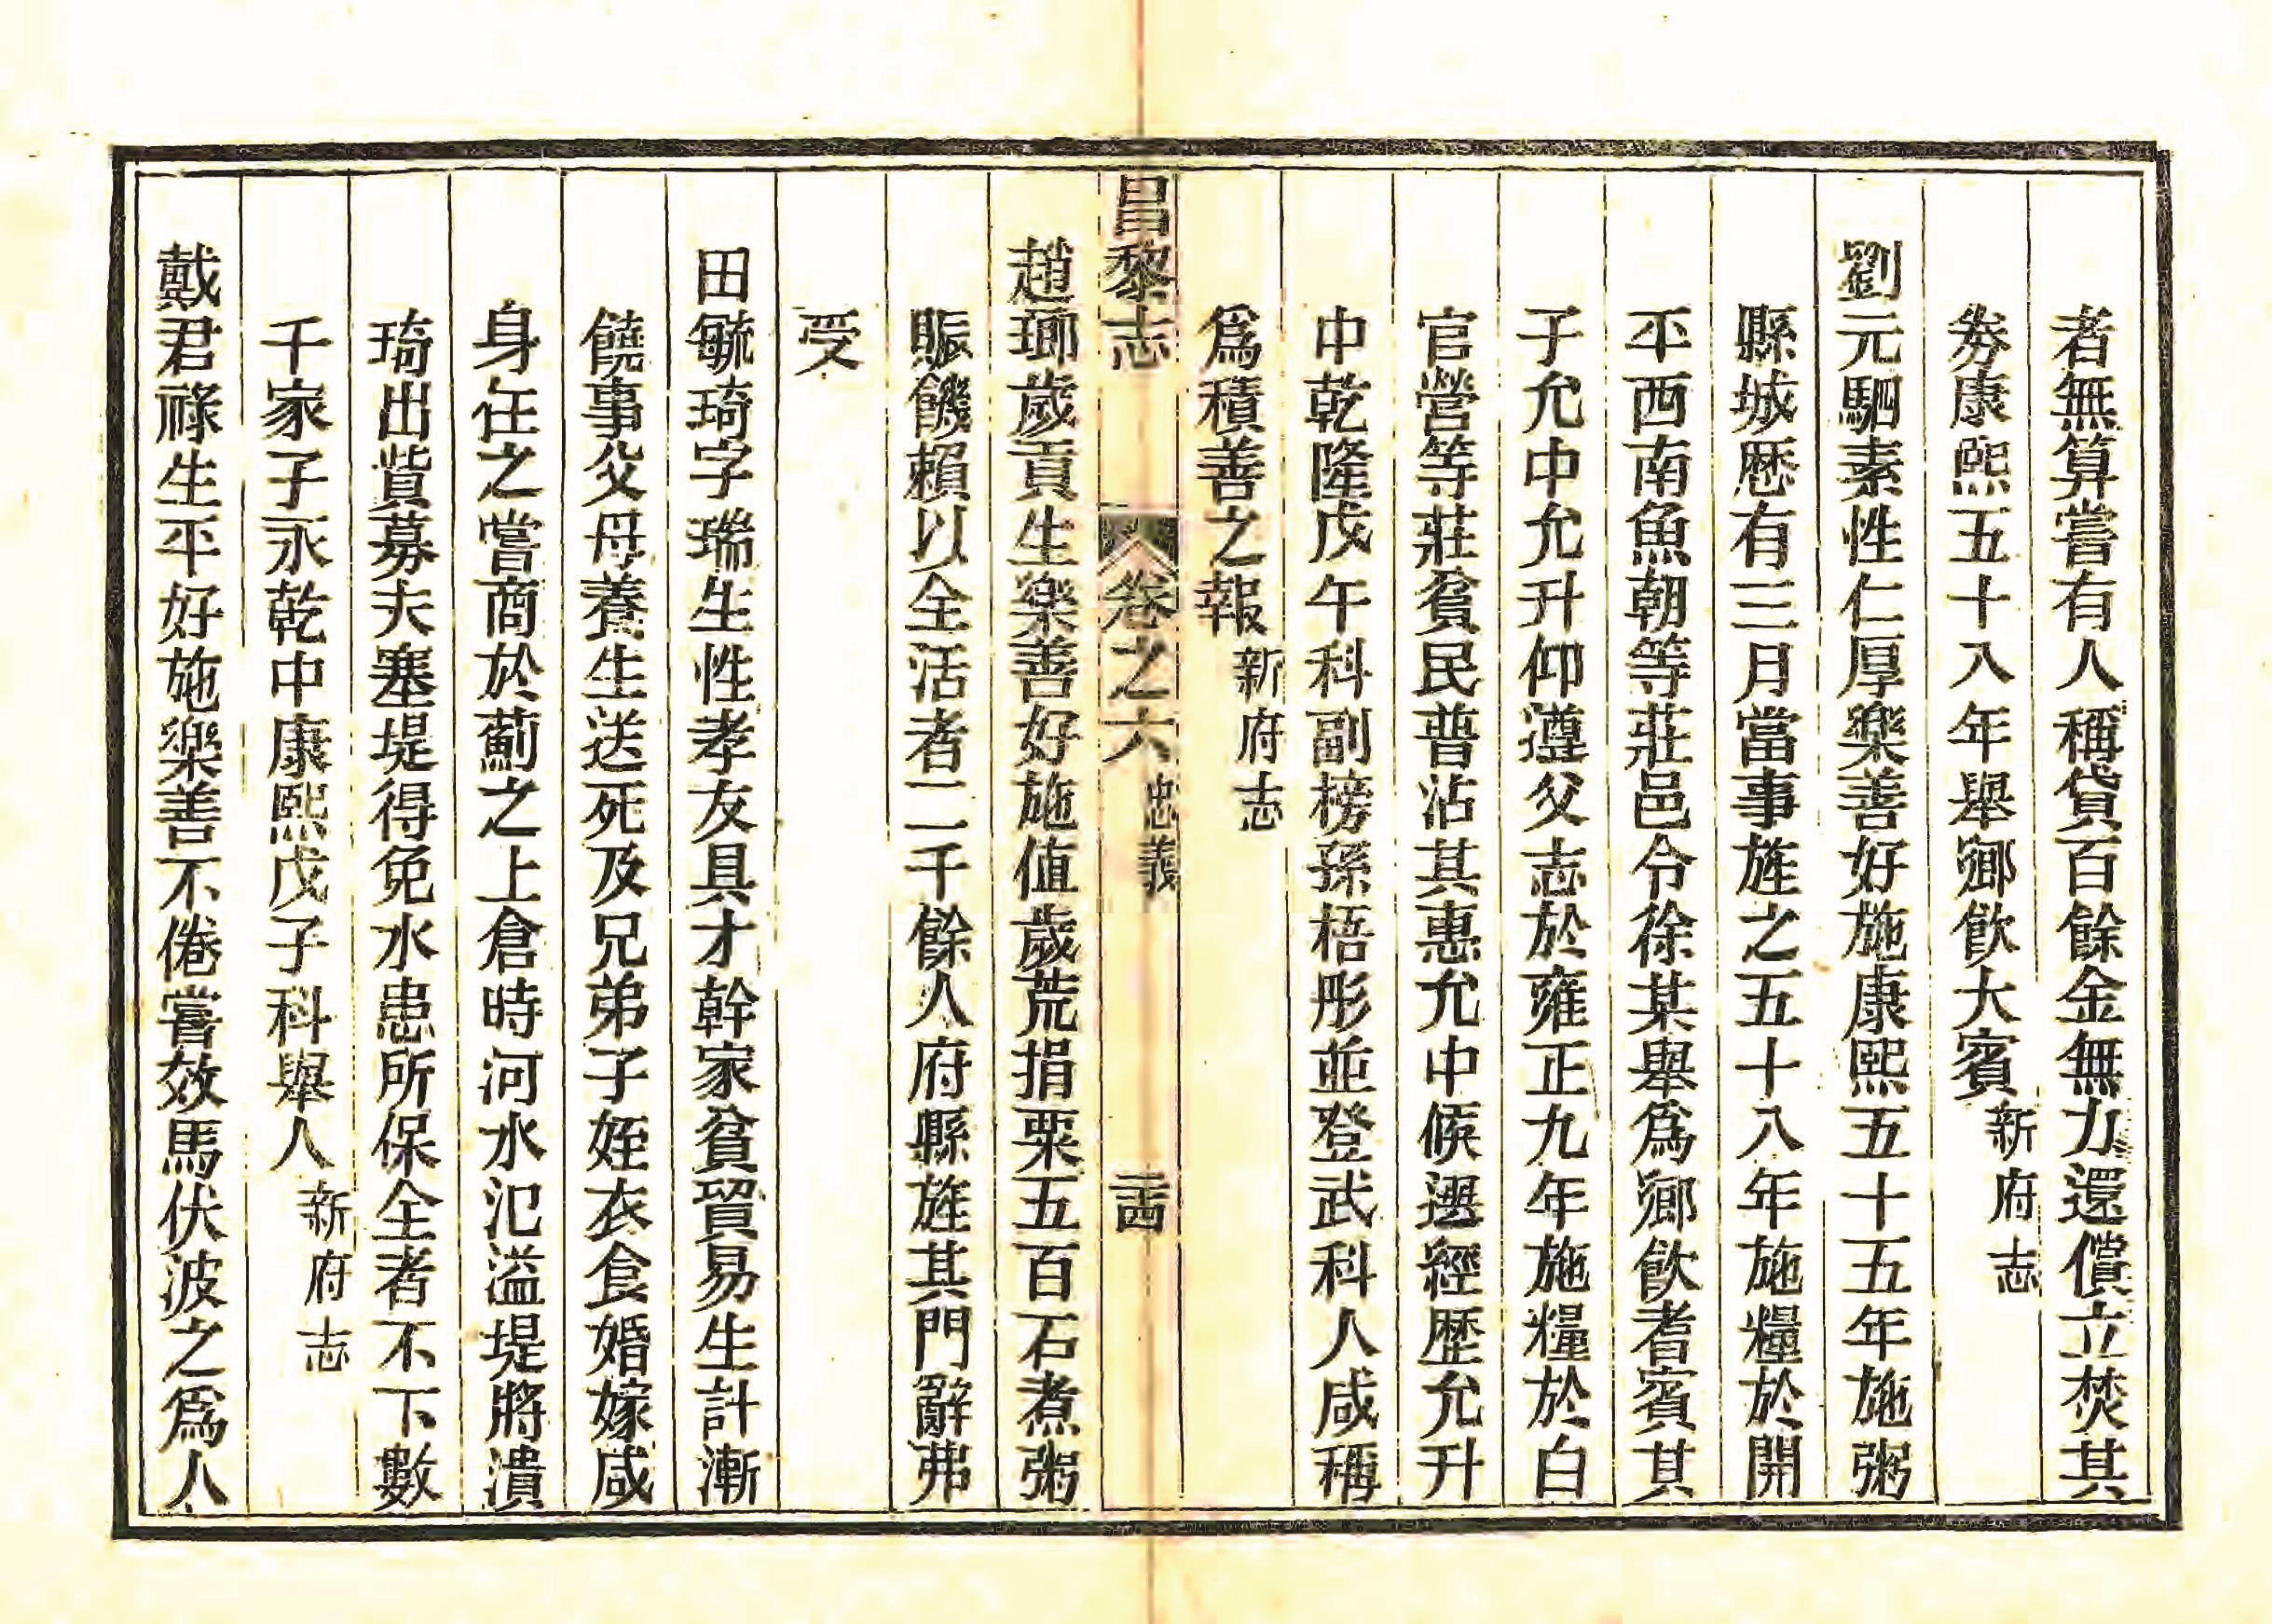 者無算嘗有人稱貸百餘金無力還償立焚其
劵康熙五十八年舉鄉飲大賓新府志
劉元駟素性仁厚樂善好施康熙五十五年施粥
縣城歷有三月當事旌之五十八年施糧於開
平西南魚朝等莊邑令徐某舉爲鄉飲耆賓其
子允中允升仰遵父志於雍正九年施糧於白
官營等莊貧民普沾其惠允中候選經歷允升
中乾隆戊午科副榜孫梧彤並登武科人咸稱
爲積善之報新府志
昌黎志 卷之六 忠義 二十四
趙瑯歲貢生樂善好施值歲荒捐粟五百石煮粥
賑饑賴以全活者二千餘人府縣旌其門辭弗
受
田毓琦字瑞生性孝友具才幹家貧貿易生計漸
饒事父母養生送死及兄弟子姪衣食婚嫁咸
身任之嘗商於薊之上倉時河水氾溢堤將潰
琦出貲募夫塞堤得免水患所保全者不下數
千家子永乾中康熙戊子科舉人新府志
戴君祿生平好施樂善不倦嘗效馬伏波之爲人